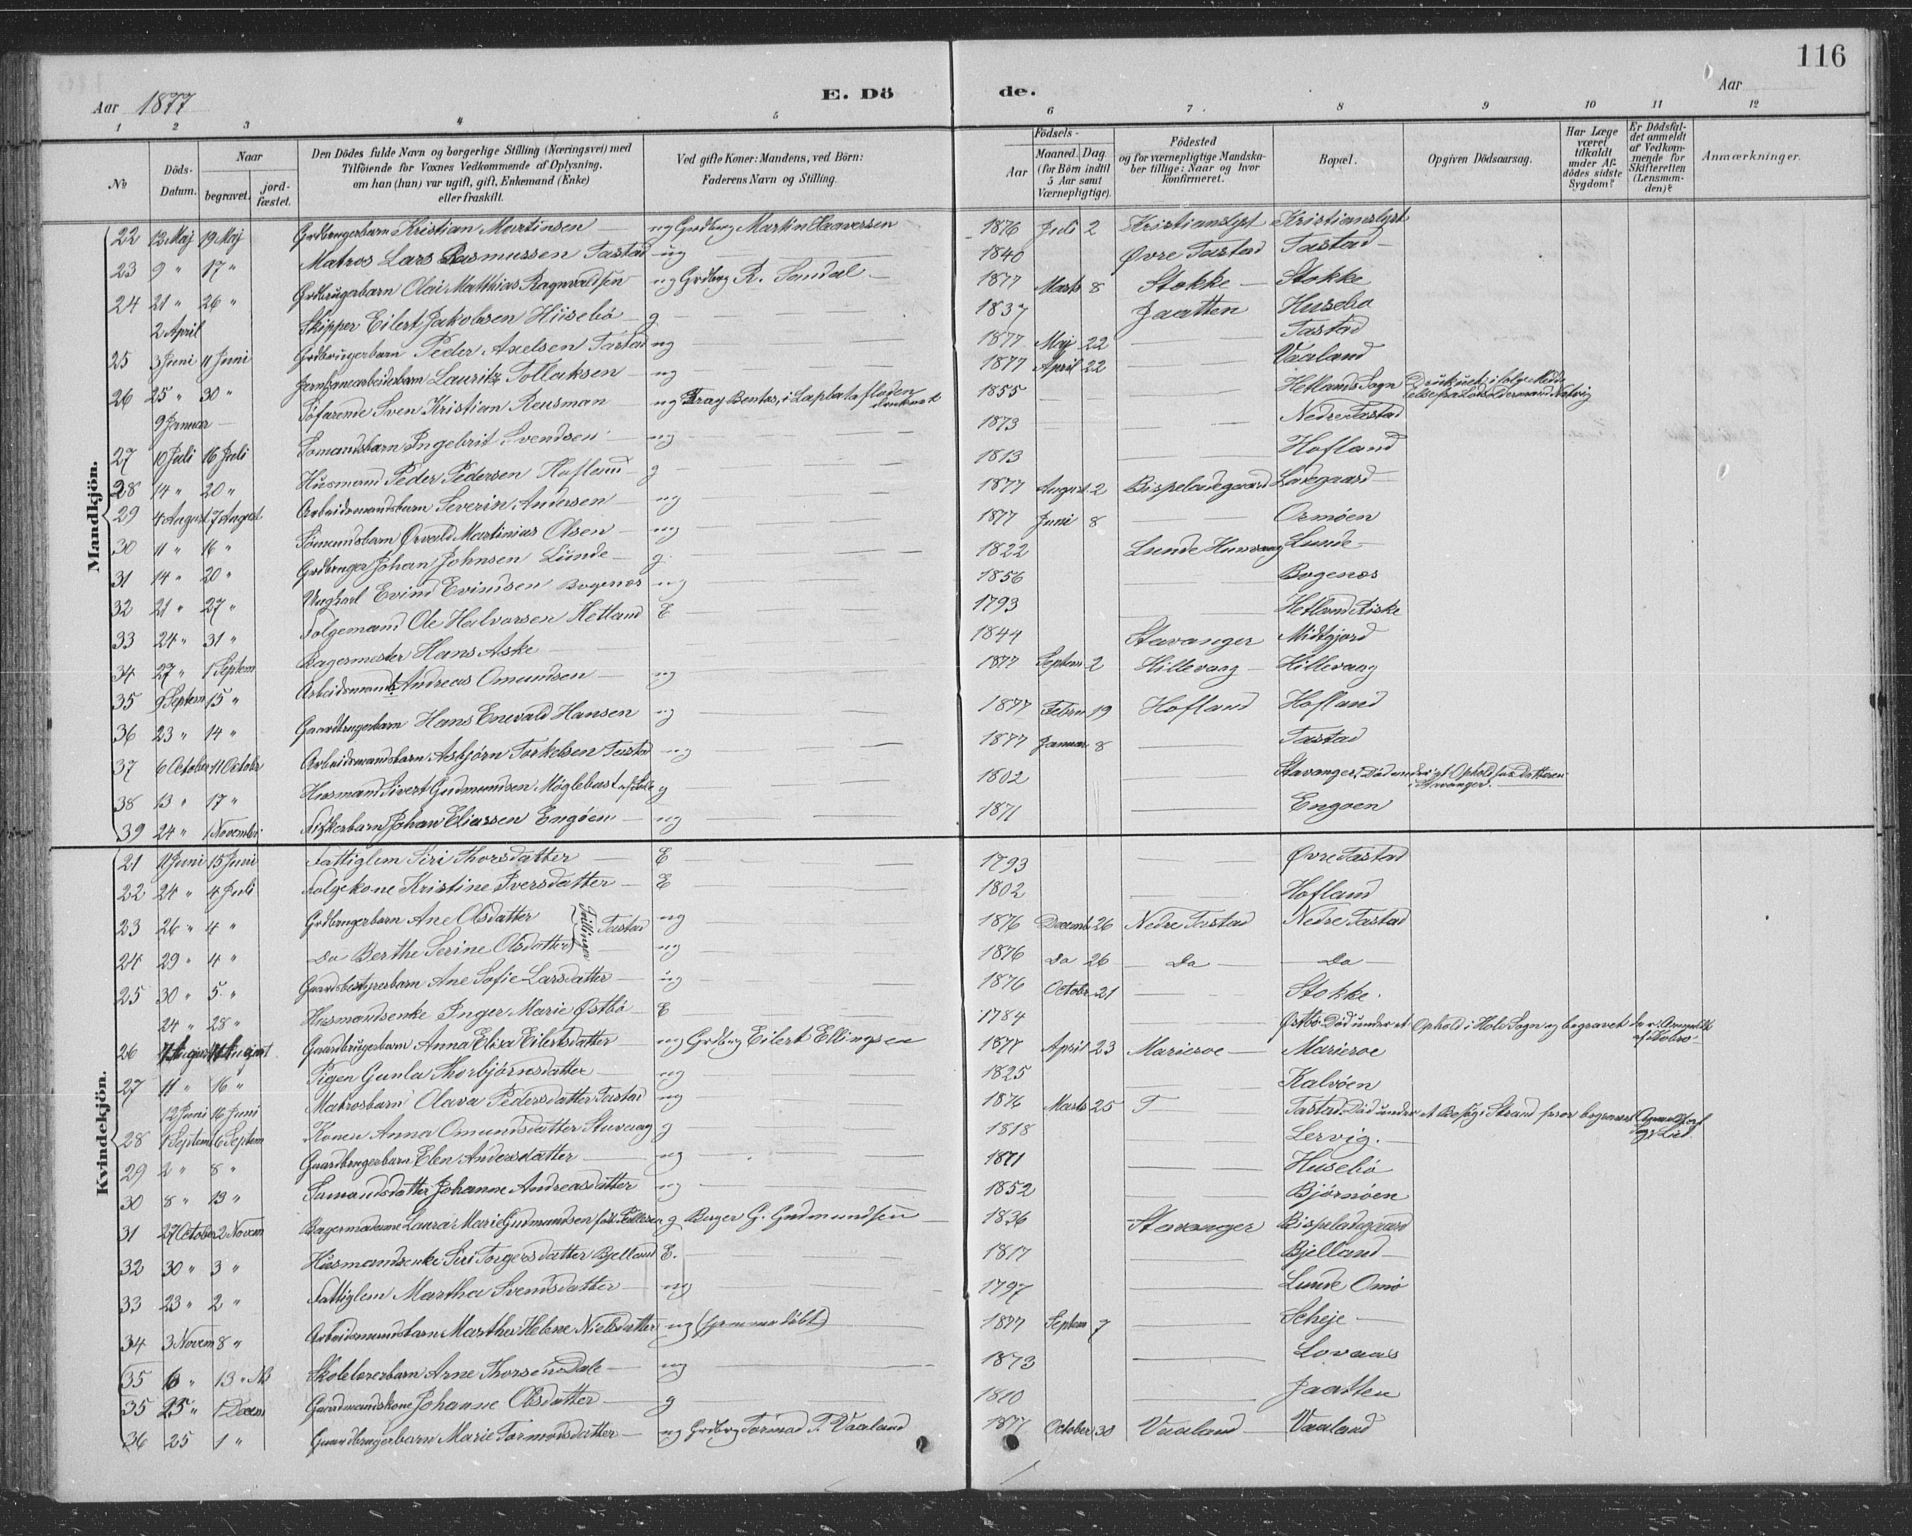 116
Aar 1877
E. Dö de.
Aar
1 2 3 4 5 6 7 8 9 10 11 12
No
Döds-Datum.
Naar
begravet. jord-fæstet.
Den Dödes fulde Navn og borgerlige Stilling (Næringsvei) med
Tilföiende for Voxnes Vedkommende af Oplysning,
om han (hun) var ugift, gift, Enkemand (Enke)
eller fraskilt.
Ved gifte Koner: Mandens, ved Börn:
Faderens Navn og Stilling.
Födsels-
Aar
Maaned. Dag
(for Börn indtil
5 Aar samt
Værnepligtige).
Födested
og for værnepligtige Mandska-
ber tillige: Naar og hvor
konfirmeret.
Bopæl.
Opgiven Dödsaarsag.
Har Læge
været
tilkaldt
under Af-
dödes sidste
Sygdom?
Er Dödsfal-
det anmeldt
af Vedkom-
mende for
Skifteretten
(Lensman-
den)?
Anmærkninger.
Mandkjön.
22 12 Maj 19 Maj Grdbrugerbarn Kristian Martinsen ug Grdbrg Martin Haavorsen 1876 Juli 2 Kristianslyst Kristianslyst
23 9 " 17 " Matros Lars Rasmussen Tastad ug 1840 Øvre Tastad Tastad
24 21 " 26 " Grdbrugerbarn Olai Matthias Ragnvaldsen ug Grdbrg R. Sandal 1877 Marts 8 Stokke Stokke
2 April Skipper Eilert Jakobsen Husebø g 1837 Jaatten Husebø
25 3 Juni 11 Juni Grdbrugerbarn Peder Axelsen Tastad ug 1877 Maj 22 Tastad
26 25 " 30 " Jernbanearbeiderbarn Lauritz Tollaksen ug 1877 April 22 Vaaland
9 Januar Søfarende Sven Kristian Reusman ug Fray Bentos, i Laplatafloden druknet 1855 Hetlands Sogn Druknet, ifølge Meddelelse fra Lodsoldermand Natvig
27 10 Juli 16 Juli Sømandsbarn Ingebrit Svendsen ug 1873 Nedre Tastad
28 14 " 20 " Husmand Peder Pedersen Hofland g 1813 Hofland
29 4 August 7 August Arbeidsmandsbarn Severin Andersen ug 1877 August 2 Bispeladegaard Ladegaard
30 11 " 16 " Sømandsbarn Osvald Martinius Olsen ug 1877 Juni 8 Ormøen
31 14 " 20 " Grdbruger Johan Johnsen Lunde g 1822 Lunde Hunsvaag Lunde
32 21 " 27 " Ungkarl Evind Evindsen Bogenæs ug 1856 Bogenæs
33 24 " 31 " Folgemand Ole Halvorsen Hetland E 1793 Hetland Riske
34 27 " 1 Septem Bagermester Hans Aske 1844 Stavanger Midtgjord
35 9 Septem 15 " Arbeidsmands Andreas Omundsen ug 1877 Septem 2 Hillevaag Hillevaag
36 23 " 14 " Gaardbrugerbarn Hans Enevald Hansen ug 1877 Febru 19 Hofland Hofland
37 6 October 11 Octobr Arbeidsmandsbarn Asbjørn Torkelsen Tastad ug 1877 Januar 8 Tastad
38 13 " 17 " Husmand Sivert Gudmundsen Møglebust g 1802 Stavanger, Død under et Ophold hos Datteren i Stavanger.
39 24 " 1 Novembr Fiskerbarn Johan Eliassen Engøen ug 1871 Engøen
Kvindekjön.
21 11 Juni 15 Juni Fattiglem Siri Thorsdatter E 1793 Øvre Tastad
22 24 " 4 Juli Folgekone Kristine Iversdatter E 1802 Hofland
23 26 " 4 " Grdbrugerbarn Ane Olsdatter Tvillinger Tastad ug 1876 Decemb 26 Nedre Tastad Nedre Tastad
24 29 " 4 " Do Berthe Serine Olsdatter ug 1876 Do 26 Do Do
25 30 " 5 " Gaardbestyrerbarn Ane Sofie Larsdatter ug 1876 Octobr 21 Stokke.
24 " 28 " Husmandsenke Inger Marie Østbø E 1784 Østbø. Død under et Ophold i Hole Sogn og begravet der.
26 August Gaardbrugerbarn Anna Elisa Eilertsdatter ug Grdbrg Eilert Ellingsen 1877 April 23 Marieroe Marieroe
27 11 " 16 " Pigen Gunla Thorbjørnsdatter ug 1825 Kalvøen
12 Juni 16 Juni Matrosbarn Olava Pedersdatter Tastad ug 1876 Marts 25 T Tastad. Død under et Besøg i Strand hvor begravet
28 1 Septem 6 Septem Konen Anna Omundsdatter Stuvaag g 1818 Lervig.
29 2 " 8 " Gaardbrugerbarn Elen Andersdatter ug 1871 Husebø
30 8 " 13 " Sømandsdatter Johanne Andreasdatter ug 1852 Bjørnøen
31 27 October 2 Novem Bagermadame Laura Marie Gudmundsen g Bager G. Gudmundsen 1836 Stavanger Bispeladegaard
32 30 " 3 " Husmandsenke Siri Torgersdatter Bjelland E. 1817 Bjelland
33 23 " 2 " Fattiglem Martha Svendsdatter ug 1797 Lunde Omø
34 3 Novem 8 " Arbeidsmandsbarn Martha Helene Nielsdatter ug (hjemmedøbt) 1877 Septem 7 Scheje
35 6 " 13 " NB Skolelærerbarn Arne Thorsen Dale ug 1873 Lovaas
35 25 " 1 Decem Gaardmandskone Johanne Olsdatter g 1810 Jaatten
36 25 1 " Gaardbrugerbarn Marie Tormodsdatter ug Grdbrg Tormod T. Vaaland 1877 October 30 Vaaland Vaaland